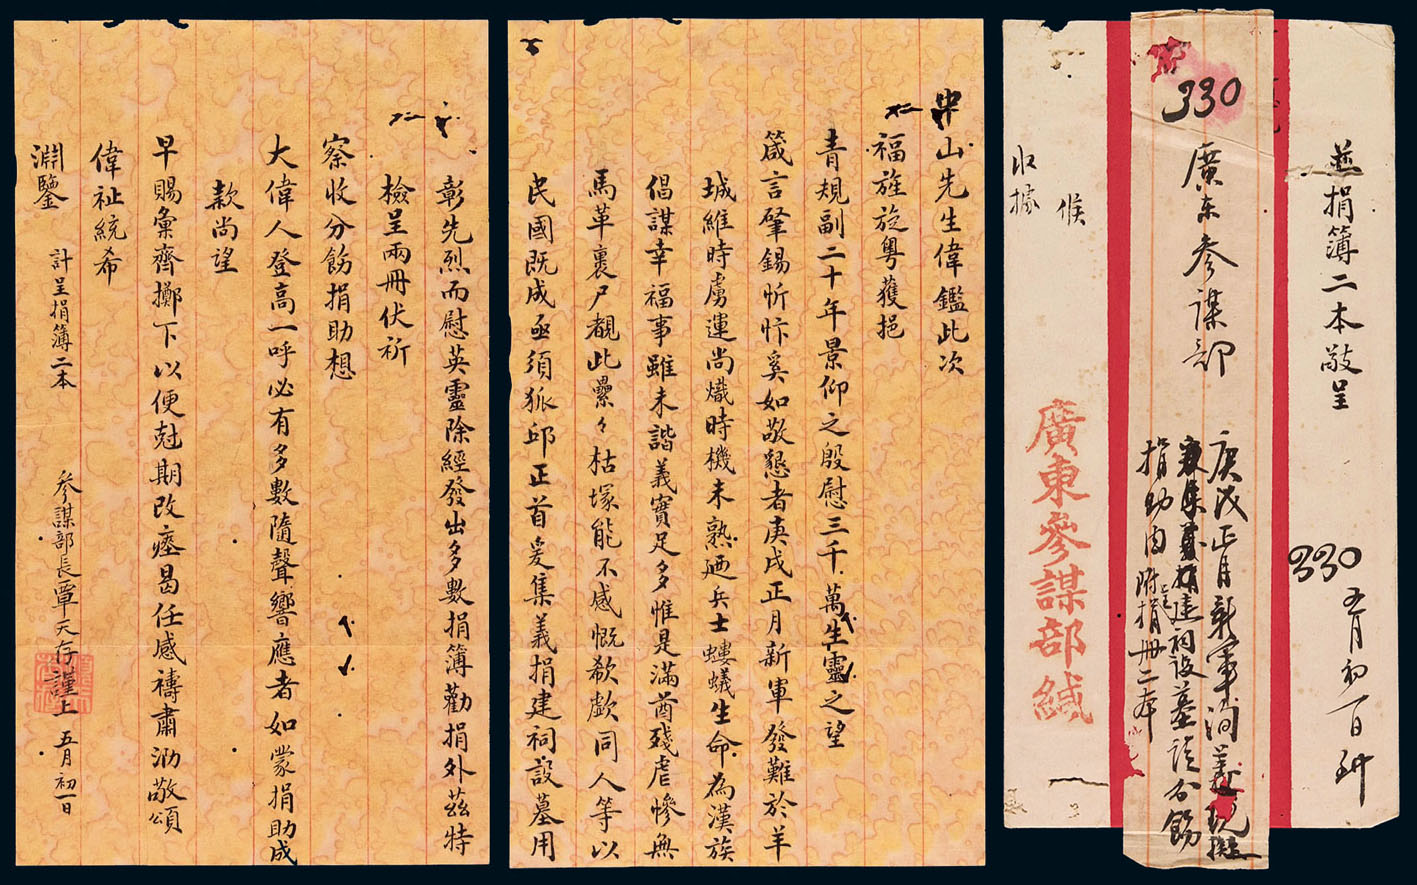 並捐簿二本敬呈
330 五月初一日到
330
廣東參謀部
庚戌正月新軍洵義
集募捐建祠設墓請分飭
捐助由 附捐冊二本
候
收據
廣東參謀部緘
中山先生偉鑑此次
福旌旋粵獲挹
青規副二十年景仰之殷慰三千萬生靈之望
箴言肇錫忻忭奚如敬懇者庚戌正月新軍發難於羊
城維時虜運尚熾時機未熟廼兵士螻蟻生命為漢族
倡謀幸福事雖未諧義實足多惟是滿酋殘虐慘無
馬革裹尸覩此纍々枯塚能不感慨欷歔同人等以
民國既成亟須狐邱正首爰集義捐建祠設墓用
彰先烈而慰英靈除經發出多數捐簿勸捐外茲特
檢呈兩冊伏祈
察收分飭捐助想
大偉人登高一呼必有多數隨聲響應者如蒙捐助成
款尚望
早賜彙齊擲下以便尅期改瘞曷任感禱肅泐敬頌
偉祉統希
淵鑒 計呈捐簿二本 參謀部長覃天存謹上 五月初一日